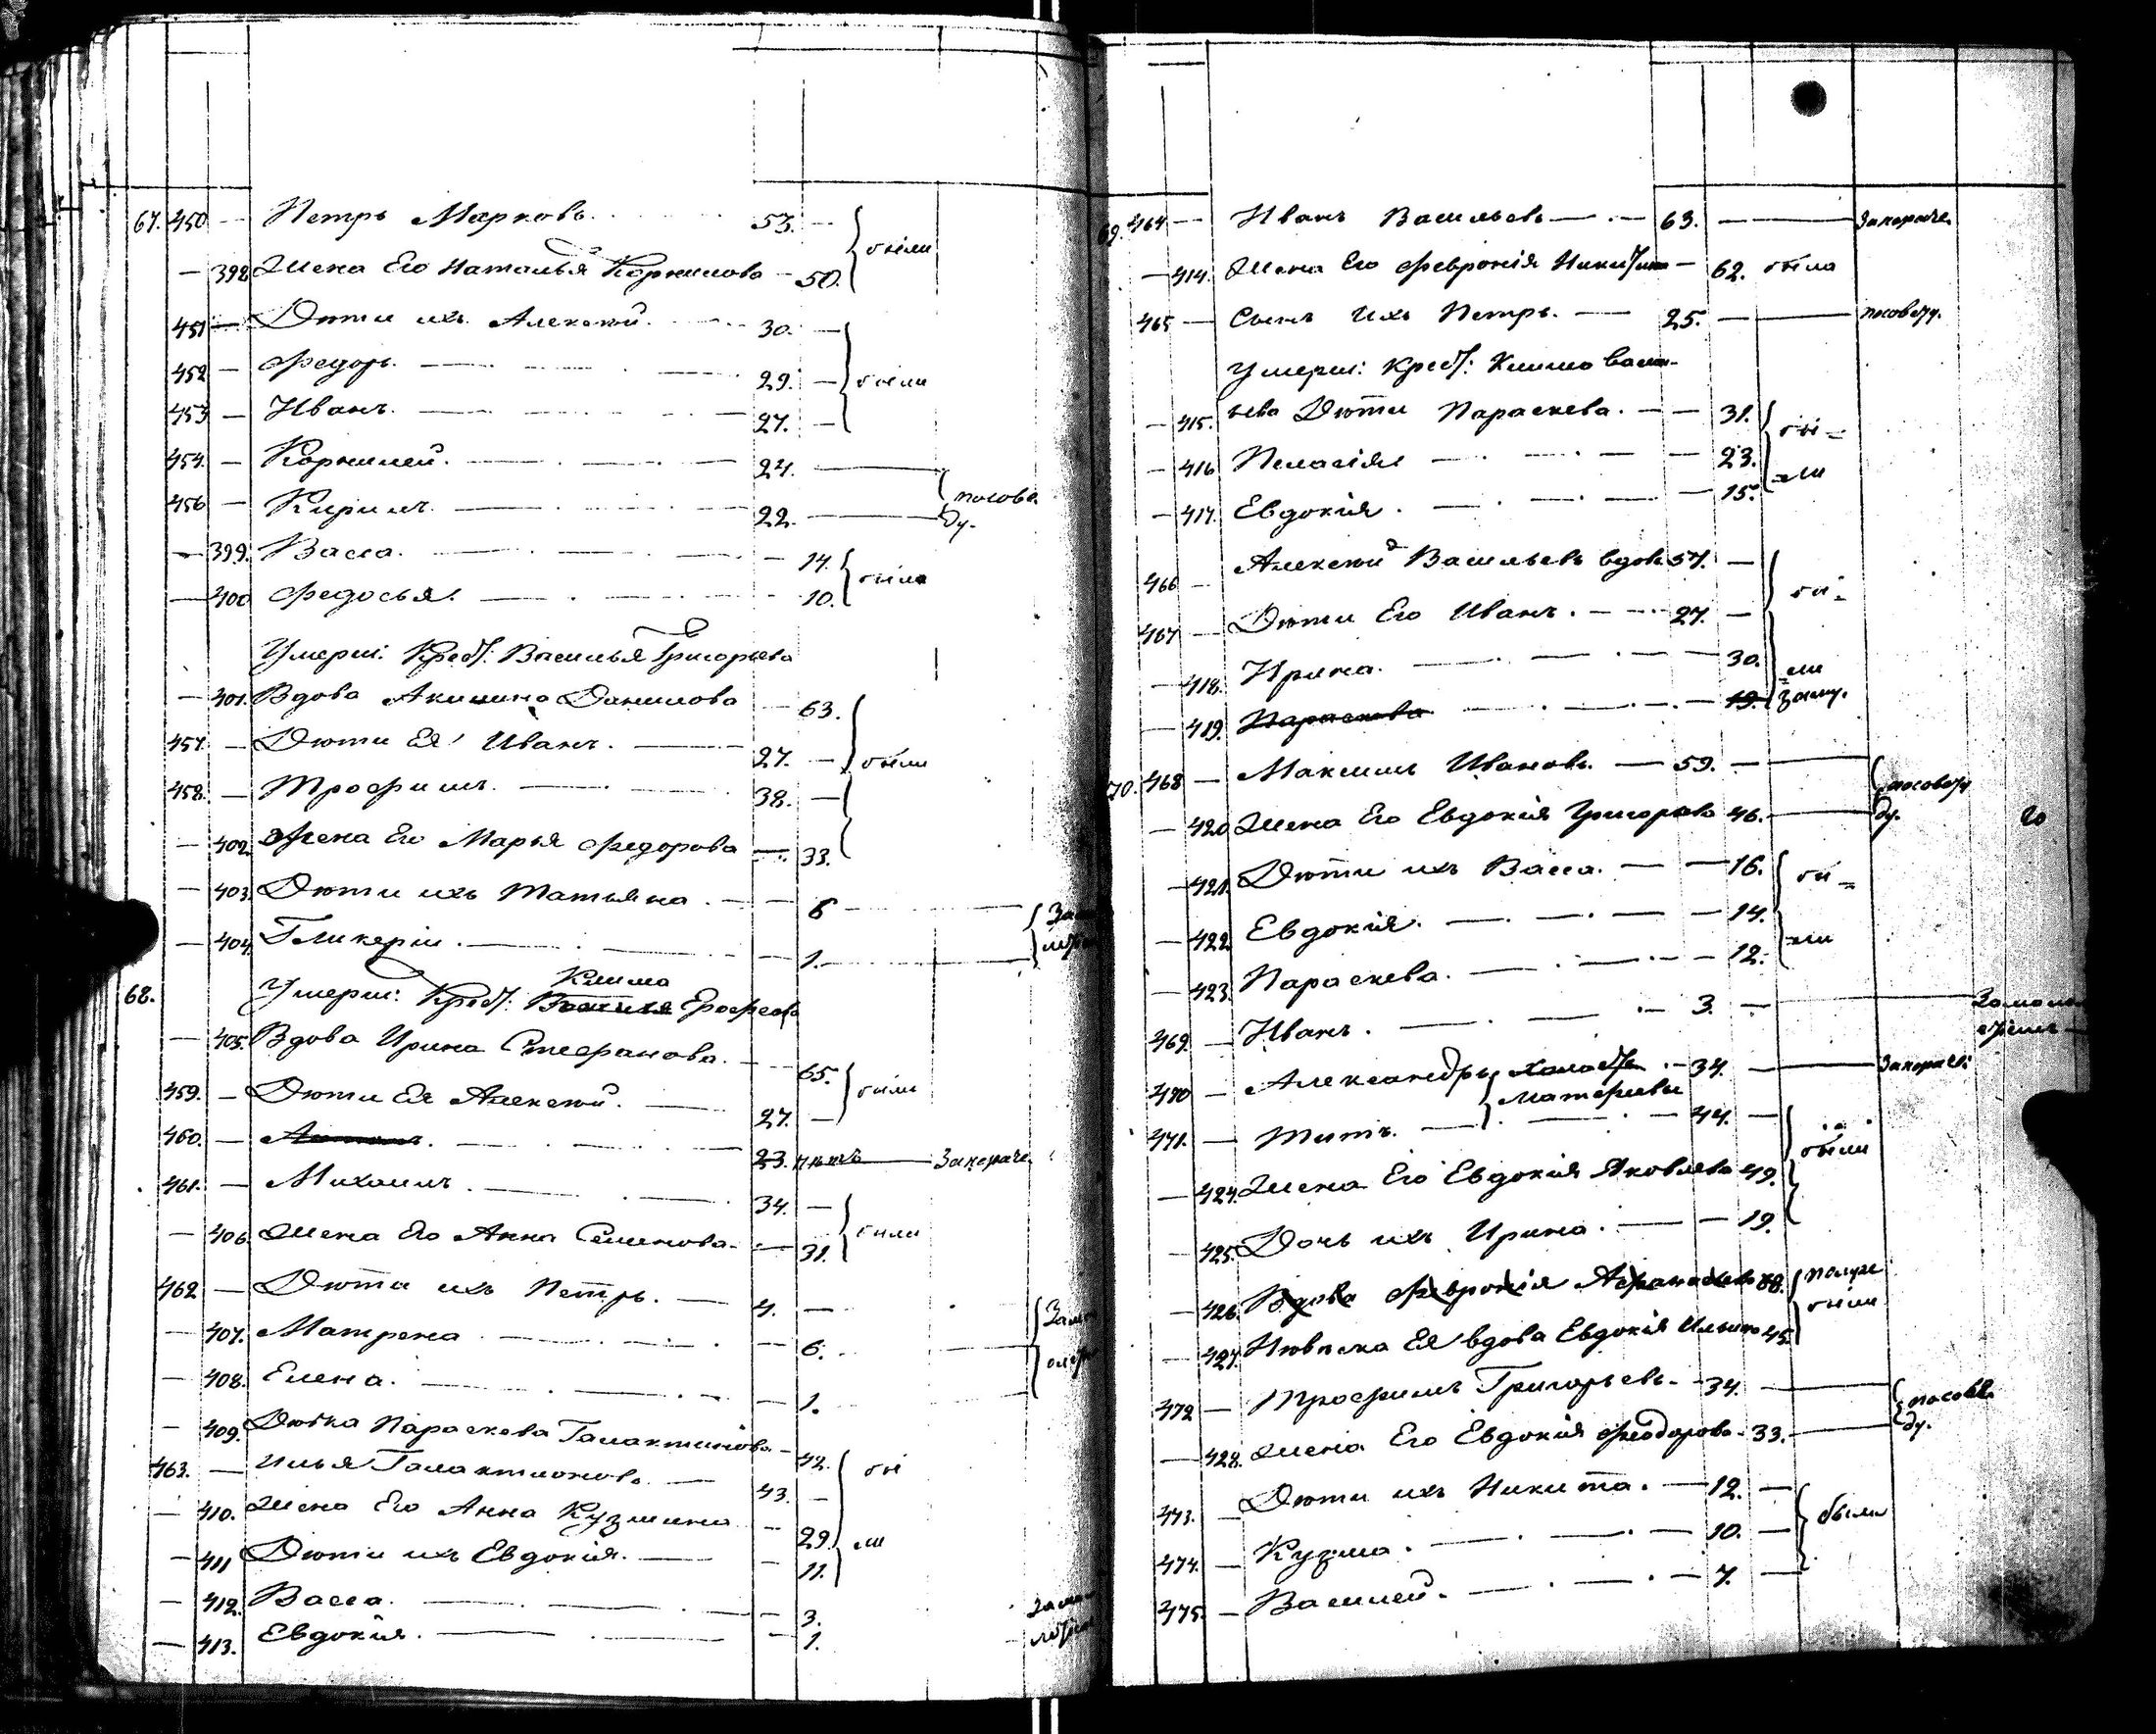 67. 450 — Петръ Марковъ. 53. — были
— 398 Жена Его Наталья Корнилова — 50.
451 — Дѣти ихъ Алексѣй. 30. —
452 — Федоръ. 29. — были
453 — Иванъ. 27. —
454. — Корнилей. 24. —
456 — Кирилъ. 22. —
— 399. Васса. — 14. были
— 400 Федосья. 10.
Умерш: Крест: Василья Григорьева
— 401. Вдова Акилина Данилова — 63.
457. — Дѣти Ея Иванъ. 27. — были
458. — Трофимъ. 38. —
— 402 Жена Его Марья Федорова — 33.
— 403. Дѣти ихъ Татьяна. — 6
— 404. Гликерія. 1.
68. Умерш: Крест: Клима Ерофеева
— 405. Вдова Ирина Стефанова. — 65. были
459. — Дѣти Ея Алексѣй. 27. —
460. — 23. нѣтъ
461. — Михаилъ. 34. —
— 406. Жена Его Анна Семенова. — 31. были
462 — Дѣти ихъ Петръ. 4. —
— 407. Матрена 6.
— 408. Елена. — 1.
— 409. Дѣвка Параскева Галактионова — 42. бы
463. — Илья Галактионовъ. 43. —
— 410. Жена Его Анна Кузмина — 29. ли
— 411 Дѣти ихъ Евдокія. — 11.
— 412. Васса. — 3.
— 413. Евдокія. — 1.
69. 464 — Иванъ Васильевъ — 63. —
— 414. Жена Его Февронія Никитина — 62. была
465 — Сынъ Ихъ Петръ. — 25. —
Умерш: Крест: Клима Василь-
— 415. ева Дѣти Параскева. — 31. бы=
— 416 Пелагія — 23. =ли
— 417. Евдокія. — 15.
466 — Алексѣй Васильевъ вдовъ 57. —
467 — Дѣти Его Иванъ. — 27. — бы=
— 418. Ирина. — 30. =ли
— 419. Параскева — 19. замуж.
70. 468 — Максимъ Ивановъ. — 59. —
— 420 Жена Его Евдокія Григорьева 46.
20
— 421. Дѣти ихъ Васса. — 16. бы=
— 422 Евдокія. — 14. =ли
— 423. Параскева. — 12.
469. — Иванъ. — 3. —
470 — Александръ холостъ 34. —
Матфеевы
471. — Титъ. — 44. — были
— 424. Жена Его Евдокія Яковлева 49.
— 425. Дочь ихъ Ирина. — 19.
— 426. Вдова Февронія Афанасьева 88.
— 427. Невѣска Ея вдова Евдокія Ильина 45. были
472 — Трофимъ Григорьевъ. 34. —
— 428. Жена Его Евдокія Феодорова. 33. —
473. — Дѣти ихъ Никита. — 12. —
474. — Кузма. — 10. — были
475. — Василей. — 7. —